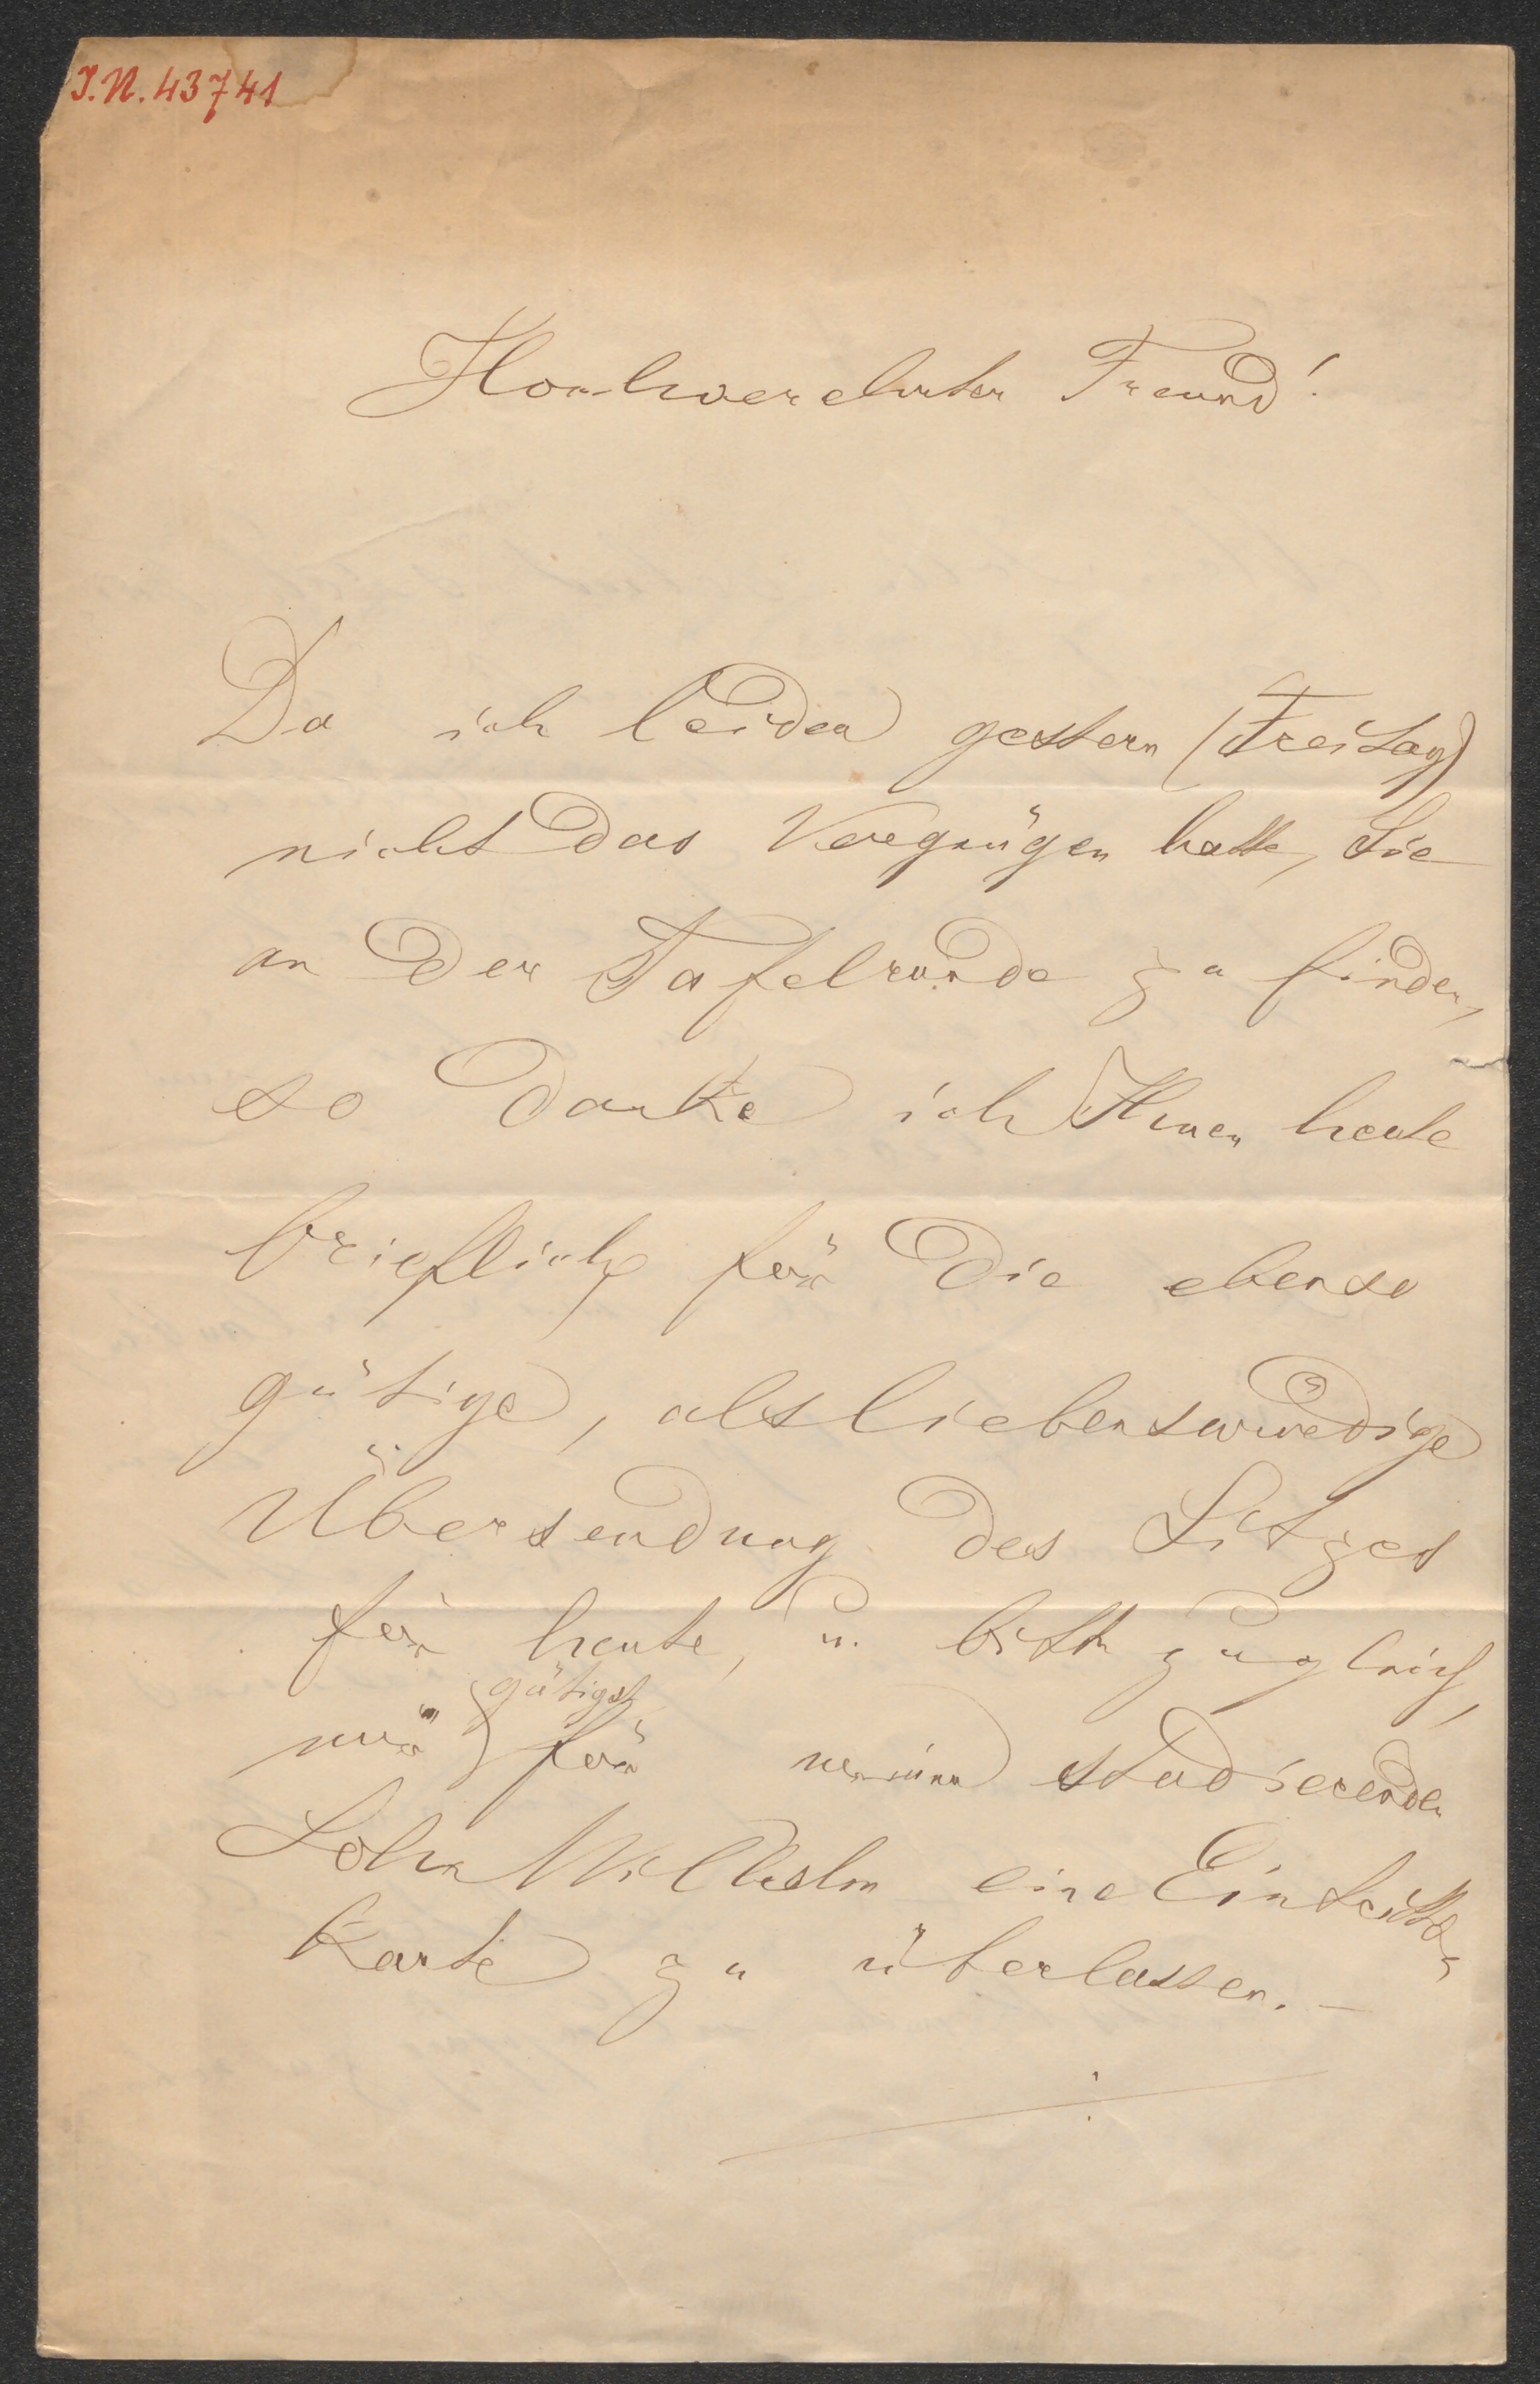 I.N. 43741
Hochverehrter Freund!
Da ich leider gestern (Freitag)
nicht das Vergnügen hatte, Sie
an der Tafelrunde zu finden,
so danke ich Ihnen heute
brieflich für die ebenso
gütige, als liebenswürdige
Übersendung des Sitzes
für heute, u. bitte zugleich,
mir gütigst für meinen studierenden
Sohn Wilhelm eine Eintritts-
karte zu überlassen. –